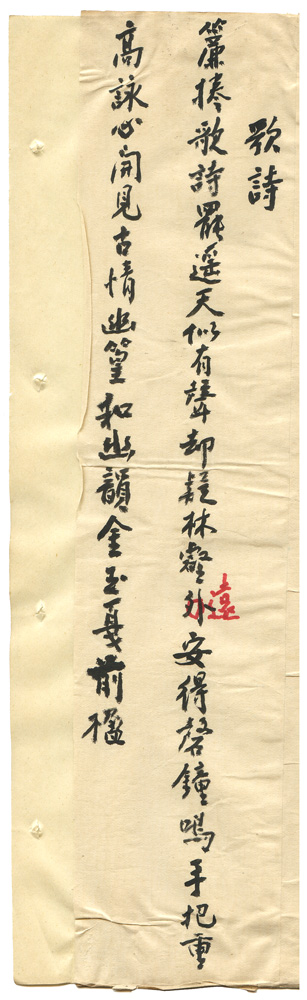 歌詩
簾捲歌詩罷遥天似有聲却疑林壑外遠安得磬鐘鳴手把重
高詠心開見古情幽篁和幽韻金玉戛前楹